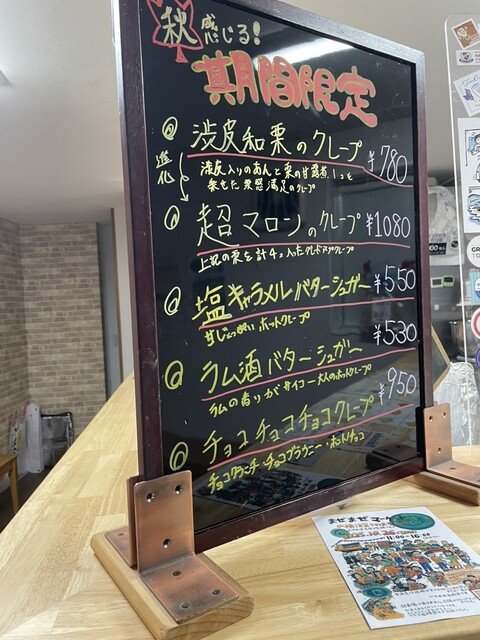 秋 感じる!
期間限定
渋皮和栗のクレープ ¥780
渋皮入りのあんと栗の甘露煮1コを
乗せた栗感満足のクレープ
進化
超マロンのクレープ ¥1080
上記の栗を計4コ入ったグレードアップクレープ
塩キャラメルバターシュガー ¥550
甘じょっぱい ホットクレープ
ラム酒バターシュガー ¥530
ラムの香りがサイコー大人のホットクレープ
チョコチョコチョコクレープ ¥950
チョコクランチ・チョコブラウニー・ホットチョコ
まぜまぜマー
11:00-16:00